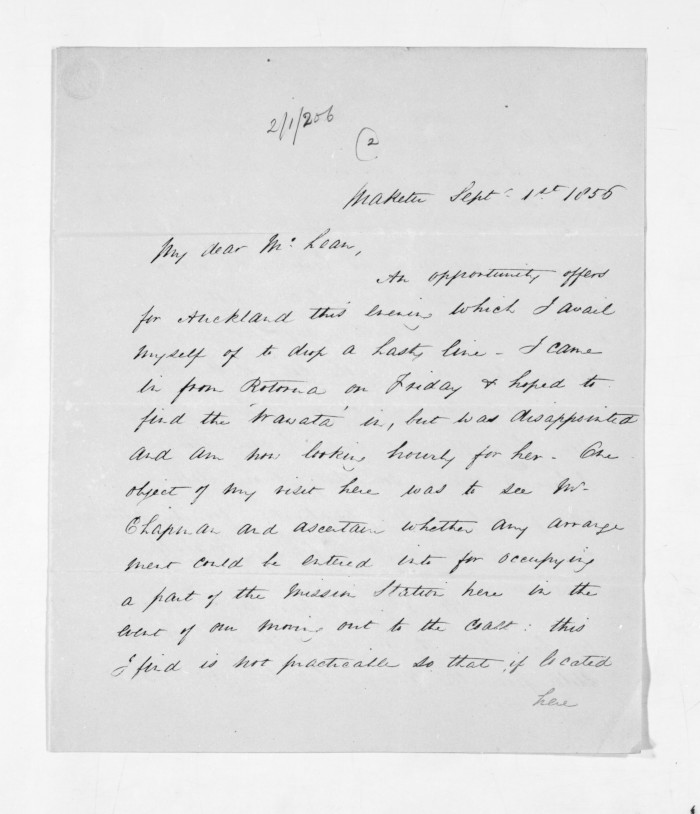 2/1/206
(2
Maketu Septr 1st 1856
My dear Mc Lean,
An opportunity offers
for Auckland this evening which I avail
myself of to drop a hasty line - I came
in from Rotorua on Friday & hoped to
find the 'Wawata' in, but was disappointed
and am now looking hourly for her - One
object of my visit here was to see Mr
Chapman and ascertain whether any arrange
ment could be entered into for occupying
a part of the Mission Station here in the
event of our moving out to the coast: this
I find is not practicable so that, if located
here